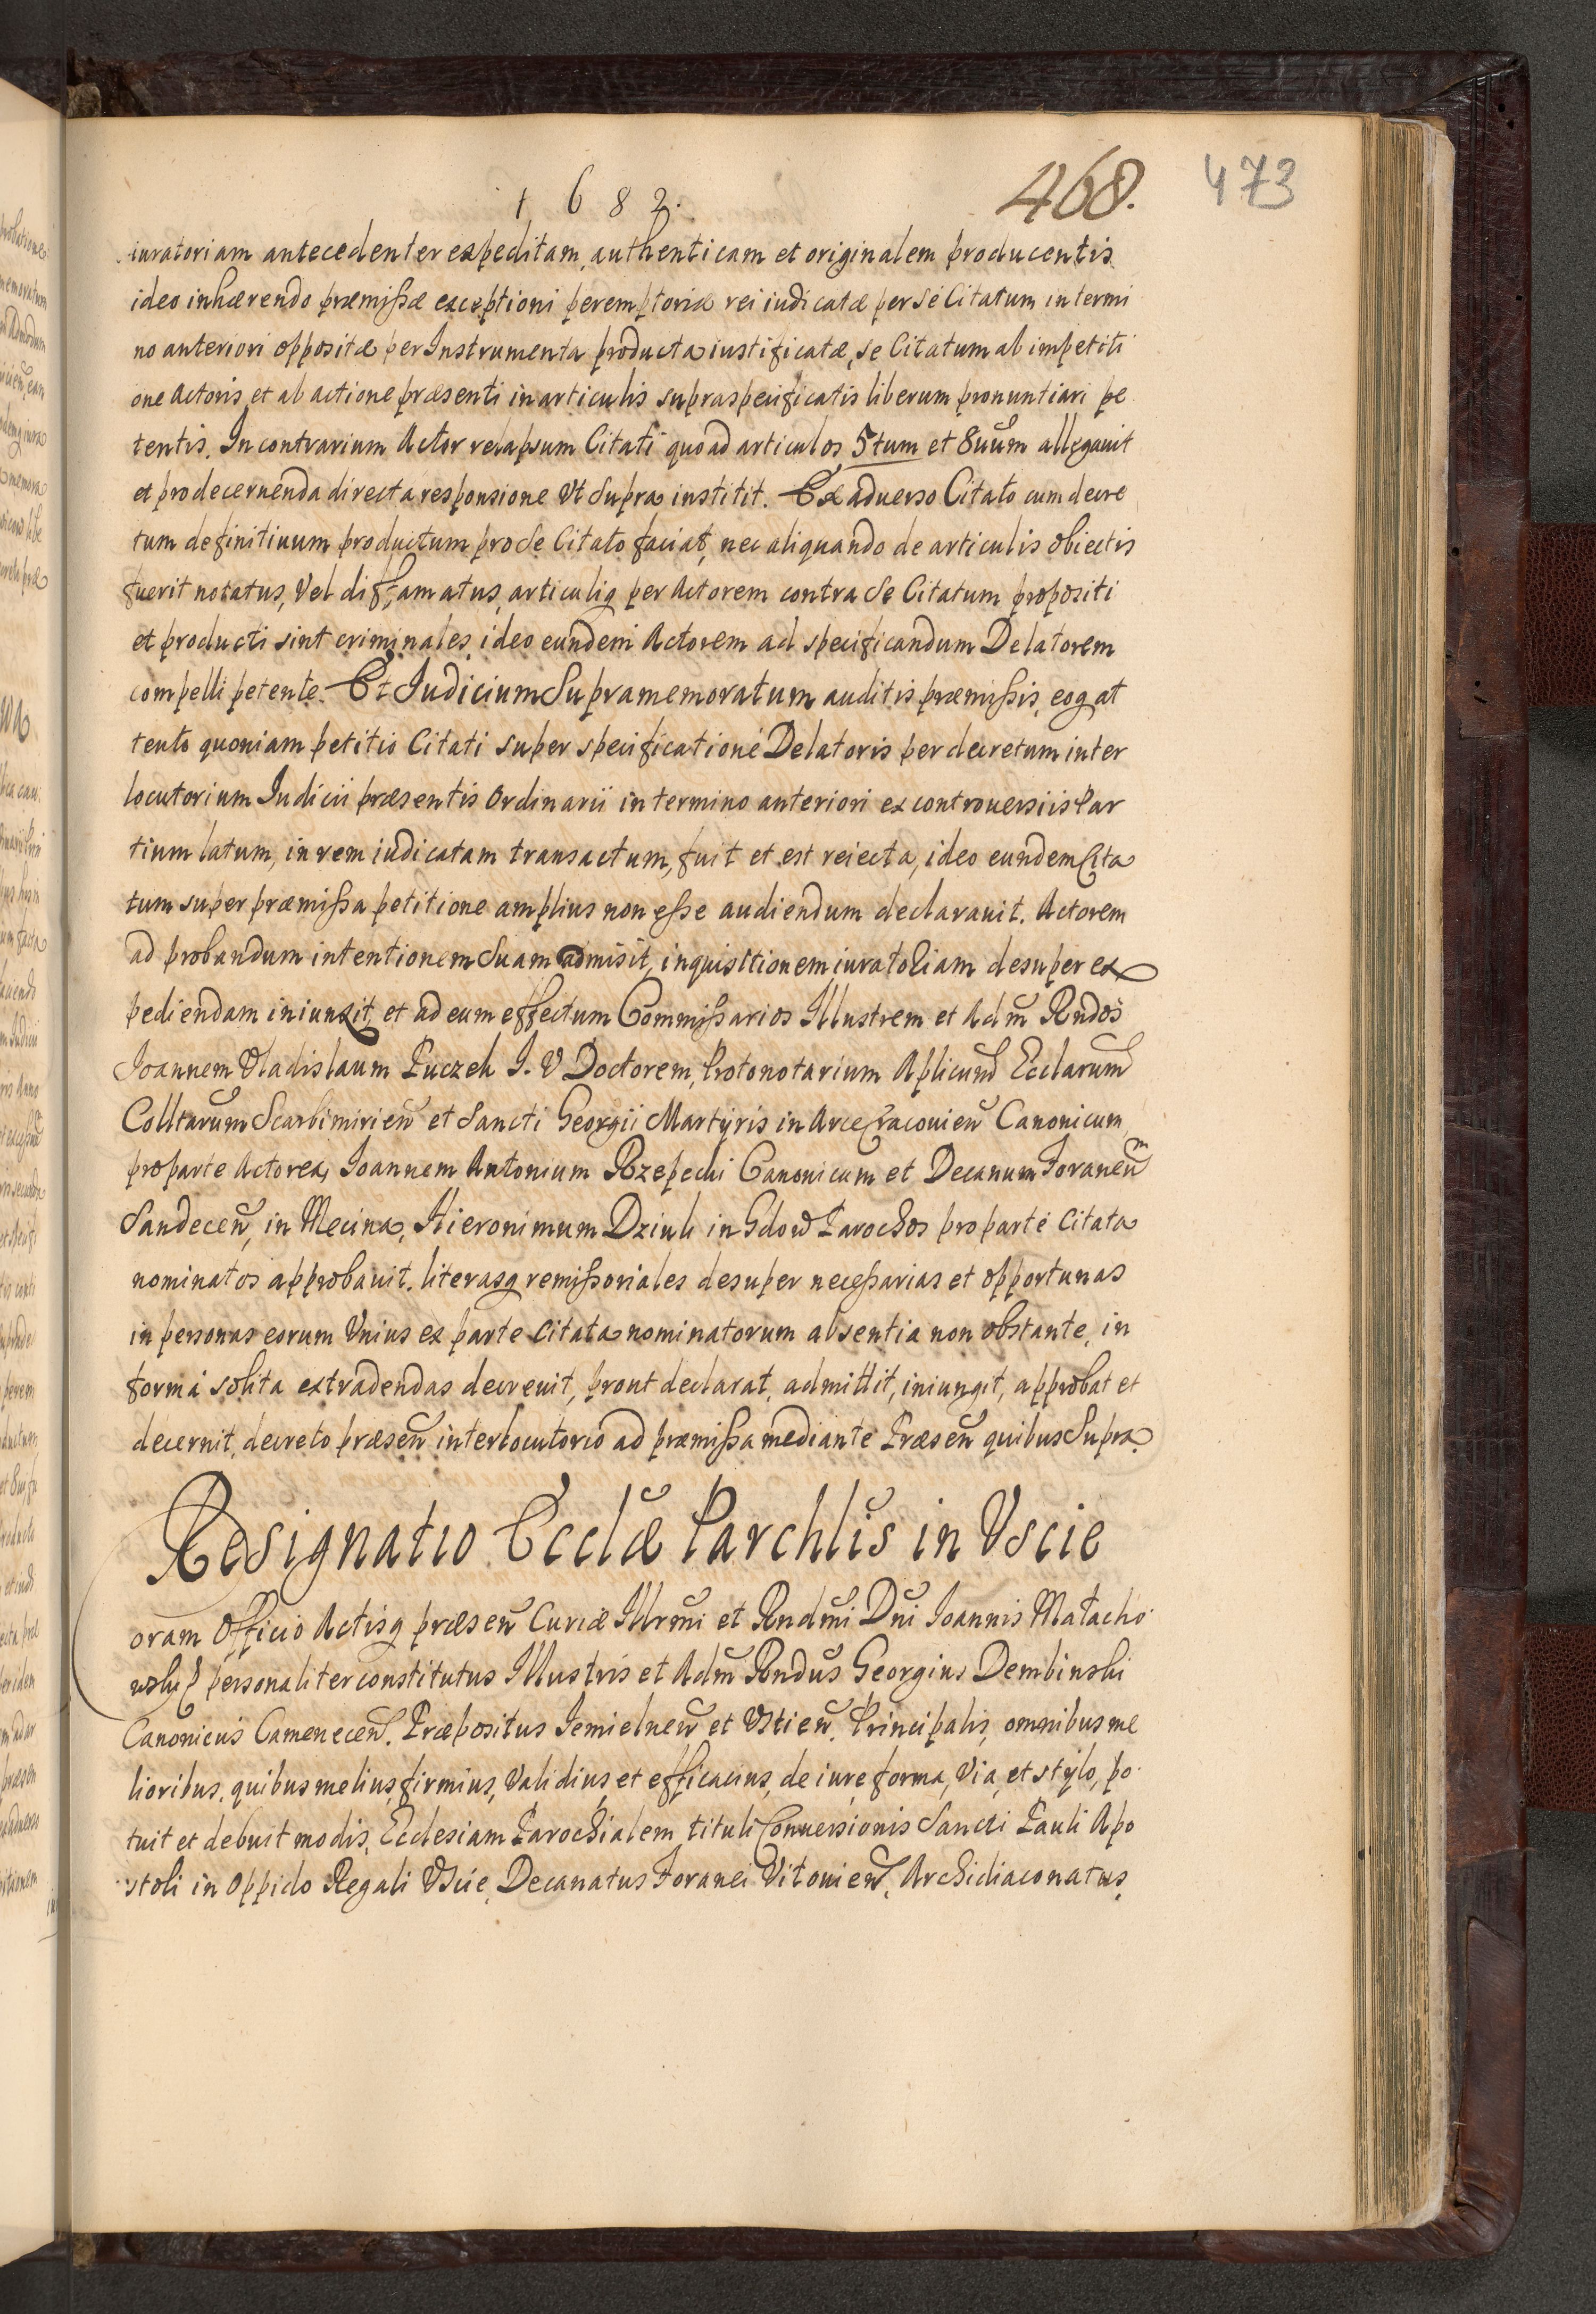 1682.
468.
473
iuratoriam antecedenter expeditam, authenticam et originalem producentis
ideo inhærendo præmissæ exceptioni peremptoriæ rei iudicatæ per se Citatum in termi
no anteriori oppositæ per Instrumenta producta iustificatæ, se Citatum ab impetiti
one Actoris, et ab actione præsenti in articulis supraspecificatis liberum pronuntiari pe
tentis. In contrarium Actor relapsum Citati quo ad articulos 5tum et 8uum allegauit
et pro decernenda directa responsione Vt Supra institit. Ex aduerso Citato cum decre
tum definitiuum productum pro Se Citato faciat, nec aliquando de articulis obiectis
fuerit notatus, Vel diffamatus, articuliq per Actorem contra Se Citatum propositi
et producti sint criminales, ideo eundem Actorem ad specificandum Delatorem
compelli petente. Et Iudicium Supramemoratum auditis præmissis, eoq at
tento quoniam petitio Citati super specificatione Delatoris per decretum inter
locutorium Iudicii præsentis Ordinarii in termino anteriori ex controuersiis Par
tium latum, in rem iudicatam transactum, fuit et est reiecta, ideo eundem Cita
tum super præmissa petitione amplius non esse audiendum declarauit. Actorem
ad probandum intentionem Suam admisit, inquisitionem iuratoriam desuper ex
pediendam iniunxit, et ad eum effectum Commissarios Illustrem et Adm Rndos
Joannem Vladislaum Puczek J. V Doctorem, Protonotarium Aplicum Ecclarum
Colltarum Scarbimirien et Sancti Georgii Martyris in Arce Cracouien Canonicum
pro parte Actorea, Joannem Antonium Rzepecki Canonicum et Decanum Foraneum
Sandecen, in Mecina, Hieronimum Dziuli in Gdow Parochos pro parte Citata
nominatos approbauit. literasq remissoriales desuper necessarias et opportunas
in personas eorum Vnius ex parte Citata nominatorum absentia non obstante, in
forma solita extradendas decreuit, prout declarat, admittit, iniungit, approbat et
decernit, decreto præsen interlocutorio ad præmissa mediante Præsen quibus Supra.
Resignatio Ecclæ Parchlis in Vscie
oram Officio Actisq præsen Curiæ Illrmi et Rndmi Dni Joannis Małacho
wski personaliter constitutus Illustris et Adm Rndus Georgius Dembinski
Canonicus Camenecen. Præpositus Jemielnen et Vstien. Principalis, omnibus me
lioribus, quibus melius, firmius, Validius, et efficacius, de iure, forma, Via, et stylo, po
tuit et debuit modis, Ecclesiam Parochialem tituli Conuersionis Sancti Pauli Apo
stoli in Oppido Regali Vscie, Decanatus Foranei Vitouien, Archidiaconatus,